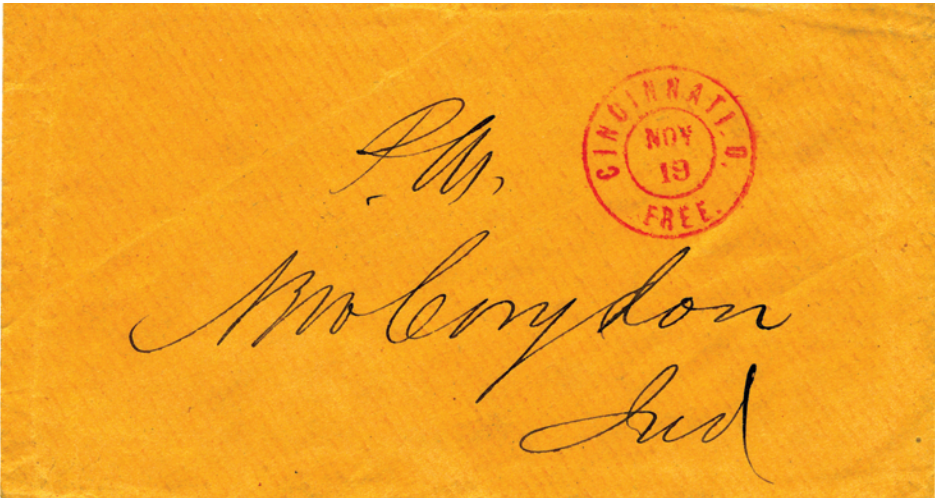 CINCINNATI. O.
NOV
19
FREE.
P. M.
New Corydon
Ind